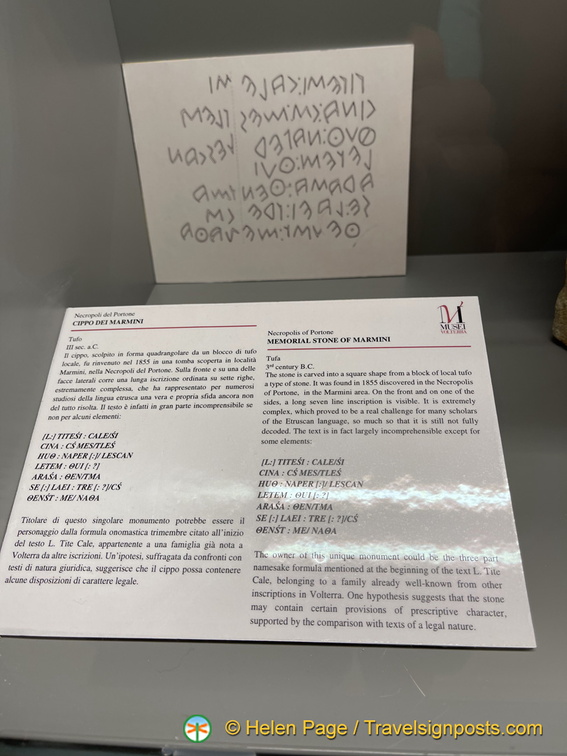 Necropoli del Portone
CIPPO DEI MARMINI
Tufo
III sec. a.C.
Il cippo, scolpito in forma quadrangolare da un blocco di tufo
locale, fu rinvenuto nel 1855 in una tomba scoperta in località
Marmini, nella Necropoli del Portone. Sulla fronte e su una delle
facce laterali corre una lunga iscrizione ordinata su sette righe,
estremamente complessa, che ha rappresentato per numerosi
studiosi della lingua etrusca una vera e propria sfida ancora non
del tutto risolta. Il testo è infatti in gran parte incomprensibile se
non per alcuni elementi:
[L:] TITEŚI : CALE/ŚI
CINA : CŚ MES/TLEŚ
HUΘ : NAPER [:]/ LESCAN
LETEM : ΘUI [: ?]
ARAŚA : ΘEN/TMA
SE [:] LAEI : TRE [: ?]/CŚ
ΘENŚT : ME/ NAΘA
Titolare di questo singolare monumento potrebbe essere il
personaggio dalla formula onomastica trimembre citato all'inizio
del testo L. Tite Cale, appartenente a una famiglia già nota a
Volterra da altre iscrizioni. Un'ipotesi, suffragata da confronti con
testi di natura giuridica, suggerisce che il cippo possa contenere
alcune disposizioni di carattere legale.
MUSEI
VOLTERRA
Necropolis of Portone
MEMORIAL STONE OF MARMINI
Tufa
3rd century B.C.
The stone is carved into a square shape from a block of local tufo
a type of stone. It was found in 1855 discovered in the Necropolis
of Portone, in the Marmini area. On the front and on one of the
sides, a long seven line inscription is visible. It is extremely
complex, which proved to be a real challenge for many scholars
of the Etruscan language, so much so that it is still not fully
decoded. The text is in fact largely incomprehensible except for
some elements:
[L:] TITEŚI : CALE/ŚI
CINA : CŚ MES/TLEŚ
HUΘ : NAPER [:]/ LESCAN
LETEM : ΘUI [: ?]
ARAŚA : ΘEN/TMA
SE [:] LAEI : TRE [: ?]/CŚ
ΘENŚT : ME/ NAΘA
The owner of this unique monument could be the three-part
namesake formula mentioned at the beginning of the text L. Tite
Cale, belonging to a family already well-known from other
inscriptions in Volterra. One hypothesis suggests that the stone
may contain certain provisions of prescriptive character,
supported by the comparison with texts of a legal nature.
© Helen Page / Travelsignposts.com